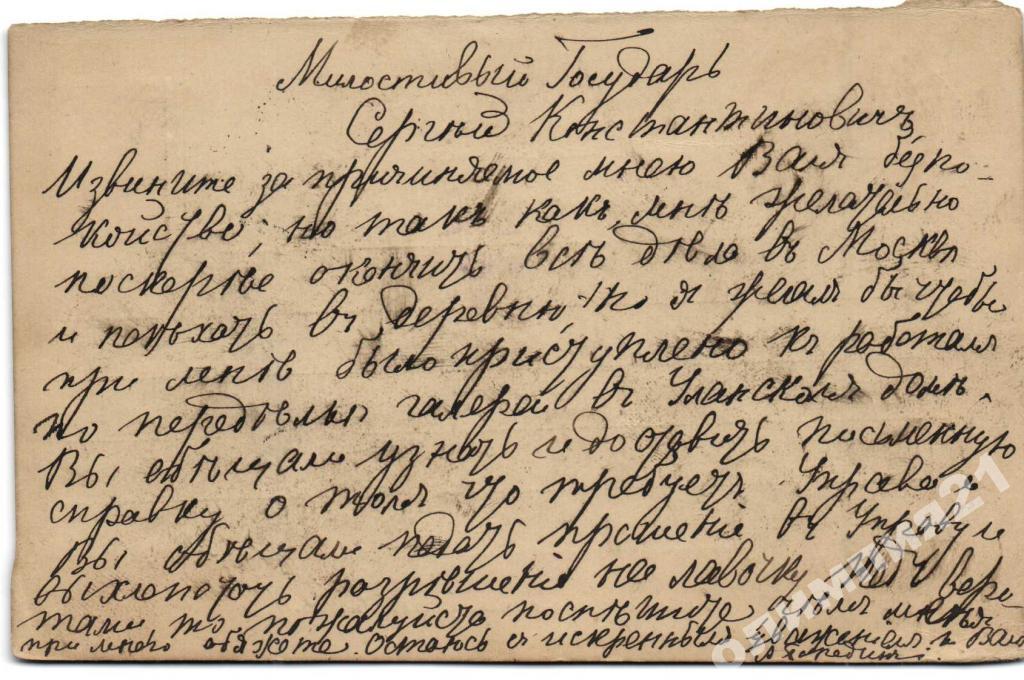 Милостивый Государь
Сергѣй Константиновичъ
Извините за причиняемое мною Вамъ безпо-
койство, но такъ какъ мнѣ желательно
поскорѣе окончить всѣ дѣла въ Москвѣ
и поѣхать въ деревню, то я желалъ бы чтобы
при мнѣ было приступлено къ работамъ
по передѣлкѣ галереи въ Уланскомъ домѣ.
Вы обѣщали узнать и доставить письменную
справку о томъ что требуетъ Управа и
Вы обѣщали подать прошеніе въ Управу и
выхлопотать разрѣшеніе на лавочку подъ воро-
тами то пожалуйста поспѣшите этимъ меня
премного обяжете. Остаюсь съ искреннимъ уваженіемъ къ Вамъ